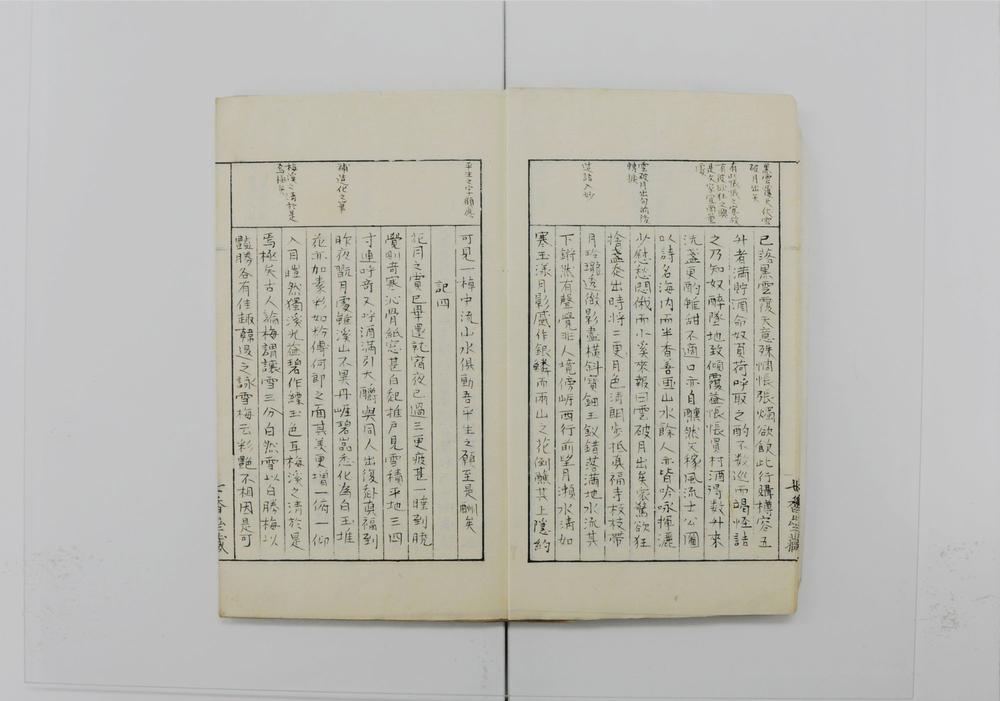 黒雲覆天伏雲
破月出矣
有此悵悵之寂故
有彼欲狂之興
是文家
雲破月出句前後
轉捩
造語入妙
已落黒雲覆天意殊惆悵張燭欲飲此行購樽容五
升者満貯酒命奴負荷呼取之酌不数巡而竭怪詰
之乃知奴醉墜地致傾覆益悵悵買村酒得数升來
洗盞更酌雖甜不適口亦自醺然矣稼風流士公圖
以詩名海内而半香善画山水餘人亦皆吟咏揮灑
少慰愁悶俄而小溪來報曰雲破月出矣衆驚欲狂
捨盞走出時将二更月色清朗步抵真福寺枝枝帯
月玲瓏透徹影盡横斜寶鈿玉釵錯落満地水流其
下鏘然有聲覺非人境傍崖西行前望月瀬水清如
寒玉漾月影蹙作銀鱗而两山之花倒蘸其上隱約
平生之字願應
補造化之筆
梅溪之清於是
焉極矣
可見一棹中流山水俱動吾平生之願至是酬矣
記四
花月之賞已畢還就宿夜已過三更疲甚一睡到曉
覺則奇寒沁骨紙窓甚白起推戸見雪積平地三四
寸連呼奇又呼酒満引大釂與同人出後赴真福到
昨夜翫月處雖溪山不異丹崖碧嵓悉化為白玉堆
花亦加素彩如粉傅何郎之面其美更増一倍一仰
入目皚然獨溪光幽碧作縹玉色耳梅溪之清於是
焉極矣古人論梅謂讓雪三分白然雪以白勝梅以
豔勝各有佳趣韓退之詠雪梅云彩艶不相因是可